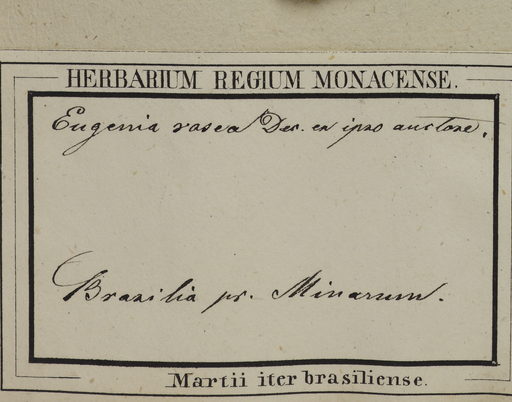 HERBARIUM REGIUM MONACENSE.
Eugenia rosea Dec. ex ipso auctore.
Brazilia pr. Minarum.
Martii iter brasiliense.